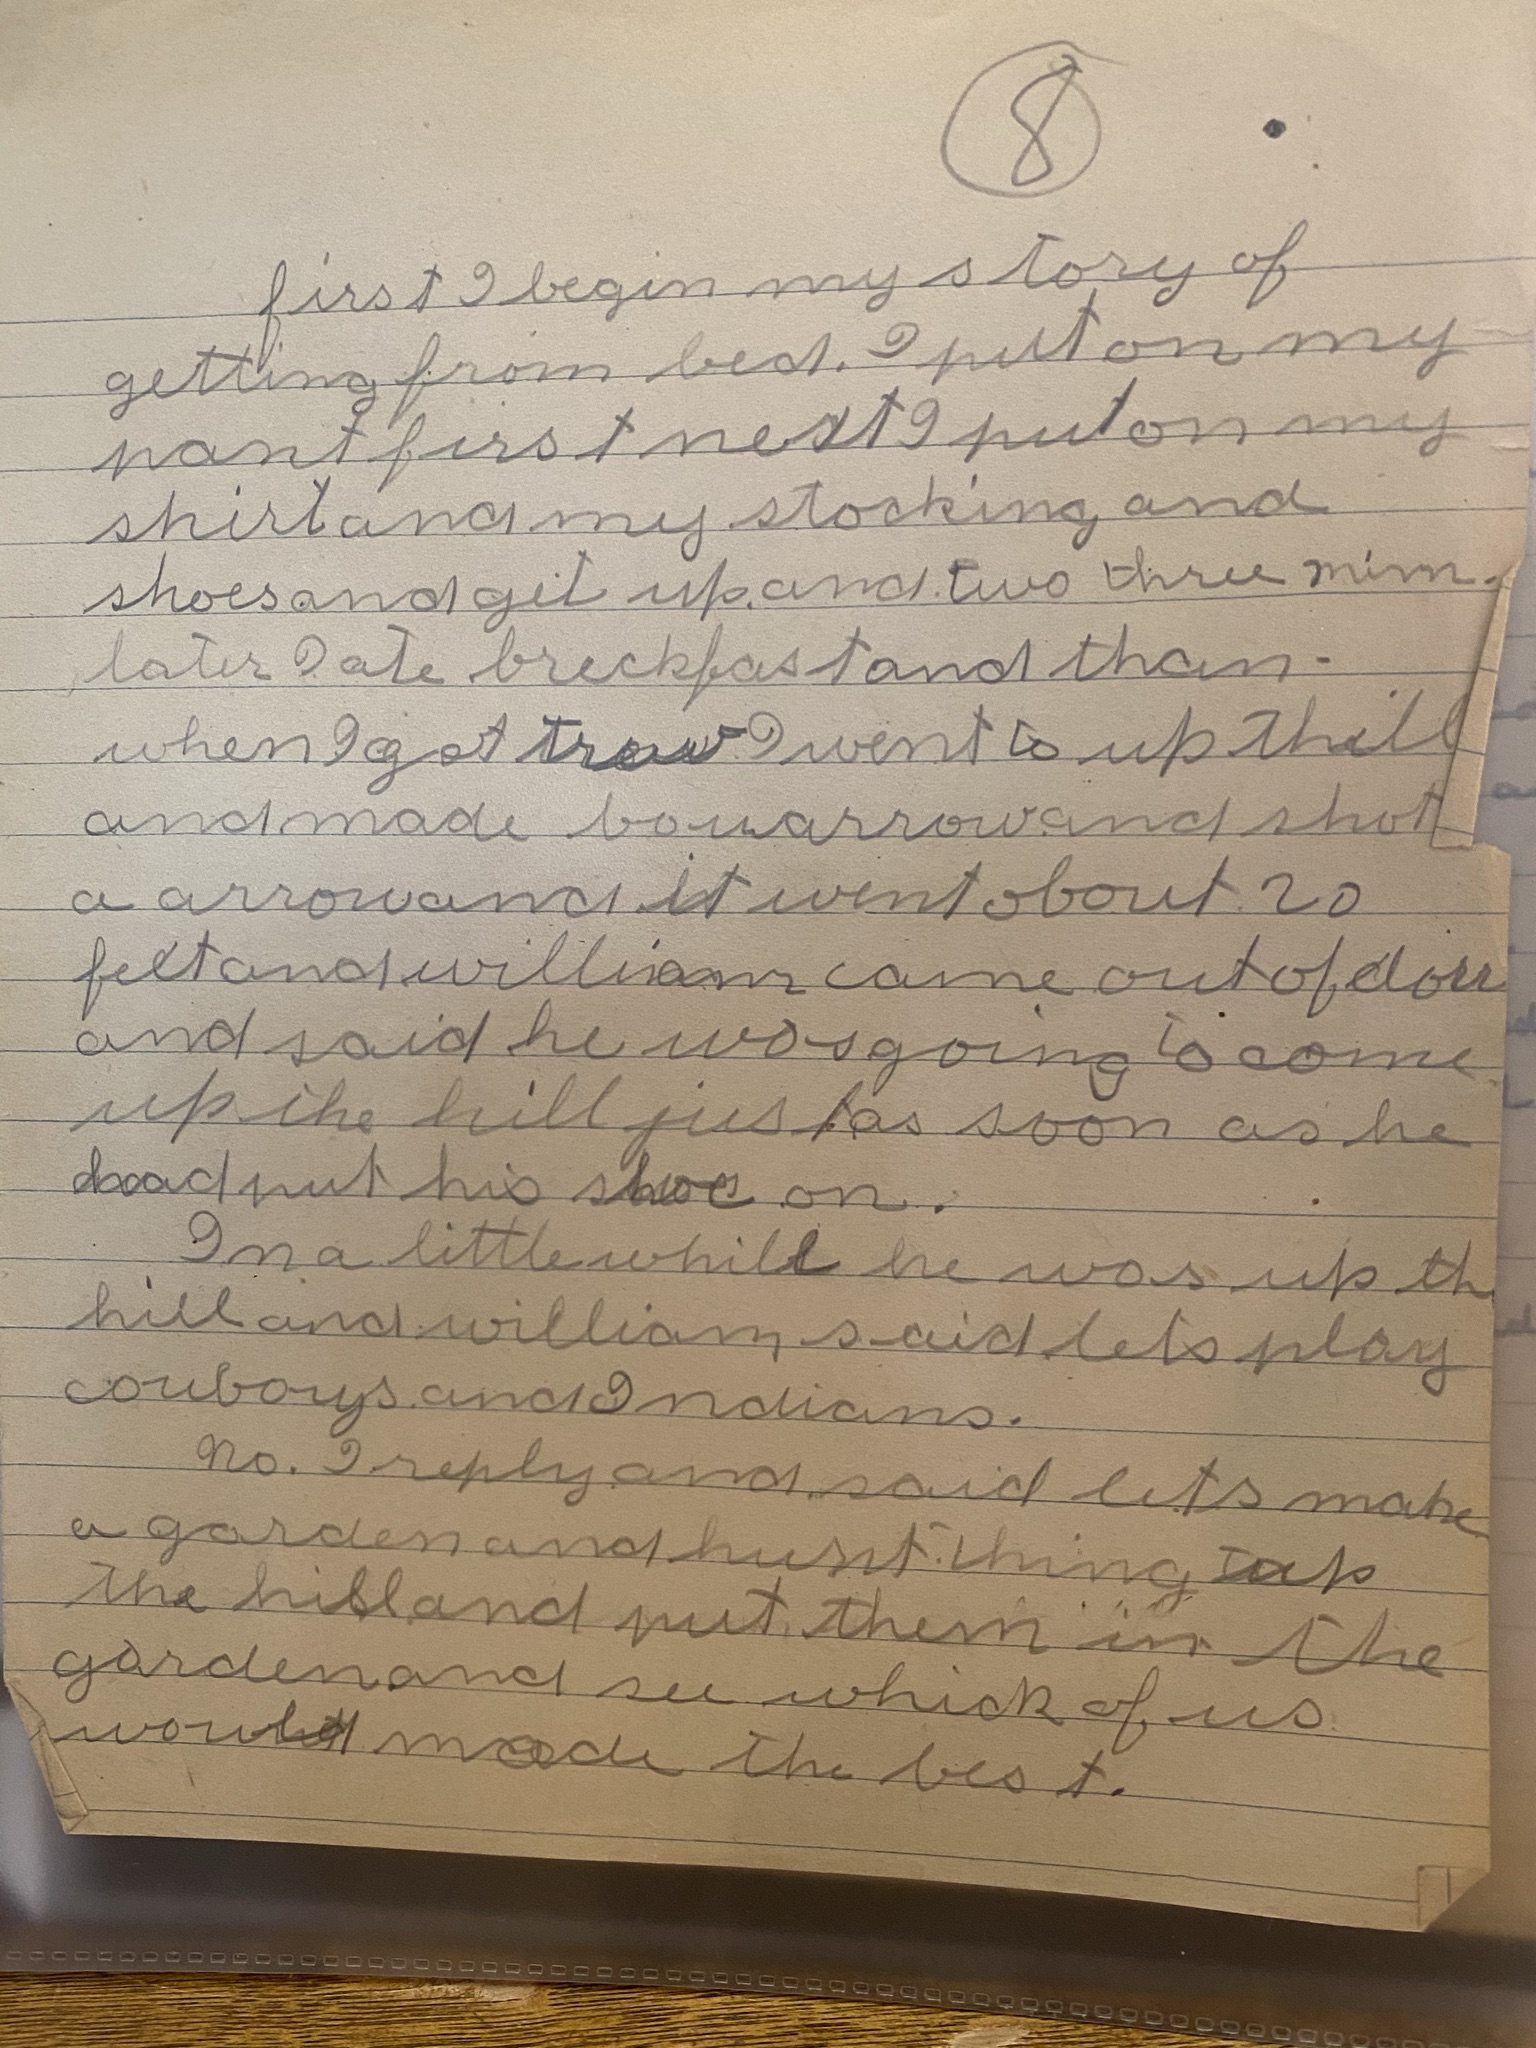 8
first I begin my story of
getting from bed. I put on my
pant first next I put on my
shirt and my stocking and
shoes and get up. and two three min.
later I ate breckfast and than
when I got trow I went to up thill
and made bow arrow and shot
a arrow and it went about 20
feet and william came out of dorr
and said he was going to come
up the hill just as soon as he
had put his shoe on.
In a little while he was up th
hill and william said lets play
couboys and Indians.
No. I reply and said lets make
a garden and hunt thing up
the hill and put them in the
garden and see which of us
would made the best.